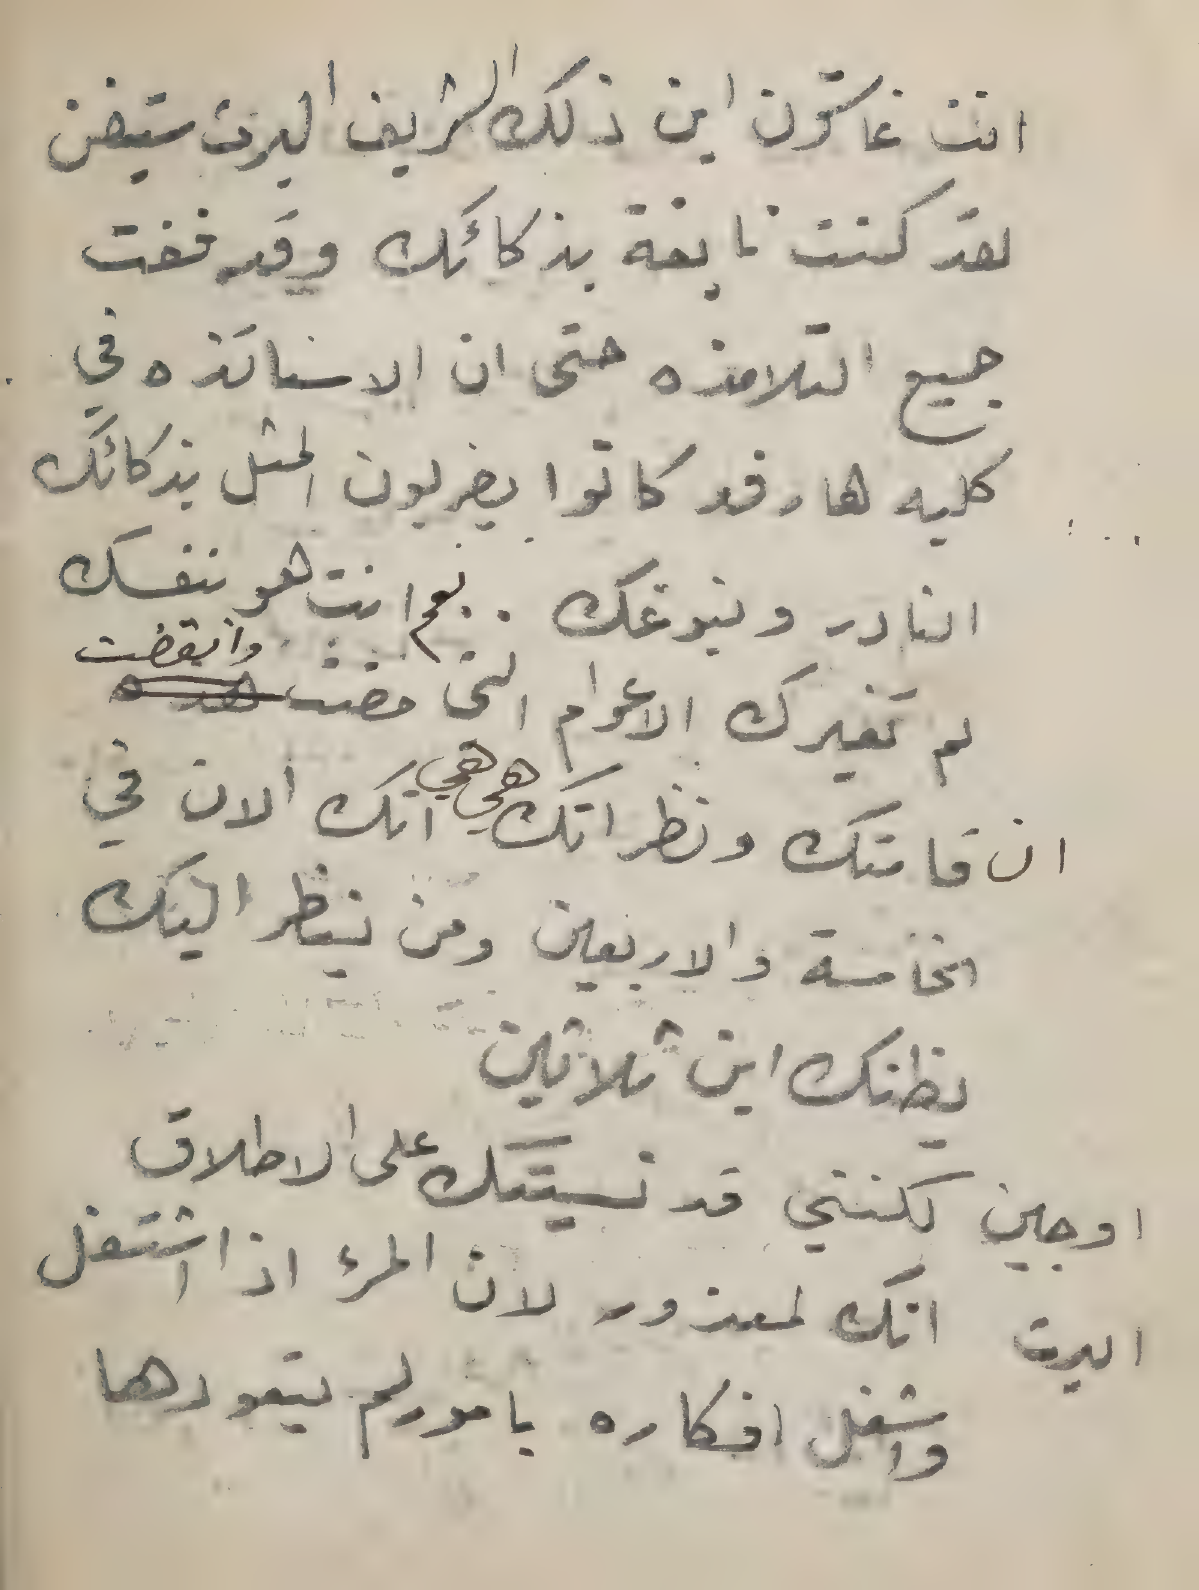 انت غاستون ابن ذلك الشريف البرت ستيفن
لقد كنت نابغة بذكائك وقد فقت
جميع التلامذه حتى ان الاساتذه في
كليه هارفد كانوا يضربون المثل بذكائك
النادر ونبوغك . . نعم انت هو نفسك
لم تغيرك الاعوام التى مضت وانقضت
ان قامتك ونظراتك هي هي انك الان في
الخامسة والاربعين ومن ينظر اليك
يظنك ابن ثلاثين
اوجين لكنني قد نسيتك على الاطلاق
البرت انك لمعذور لان المرء اذا اشتغل
واشغل افكاره بامور لم يتعودها